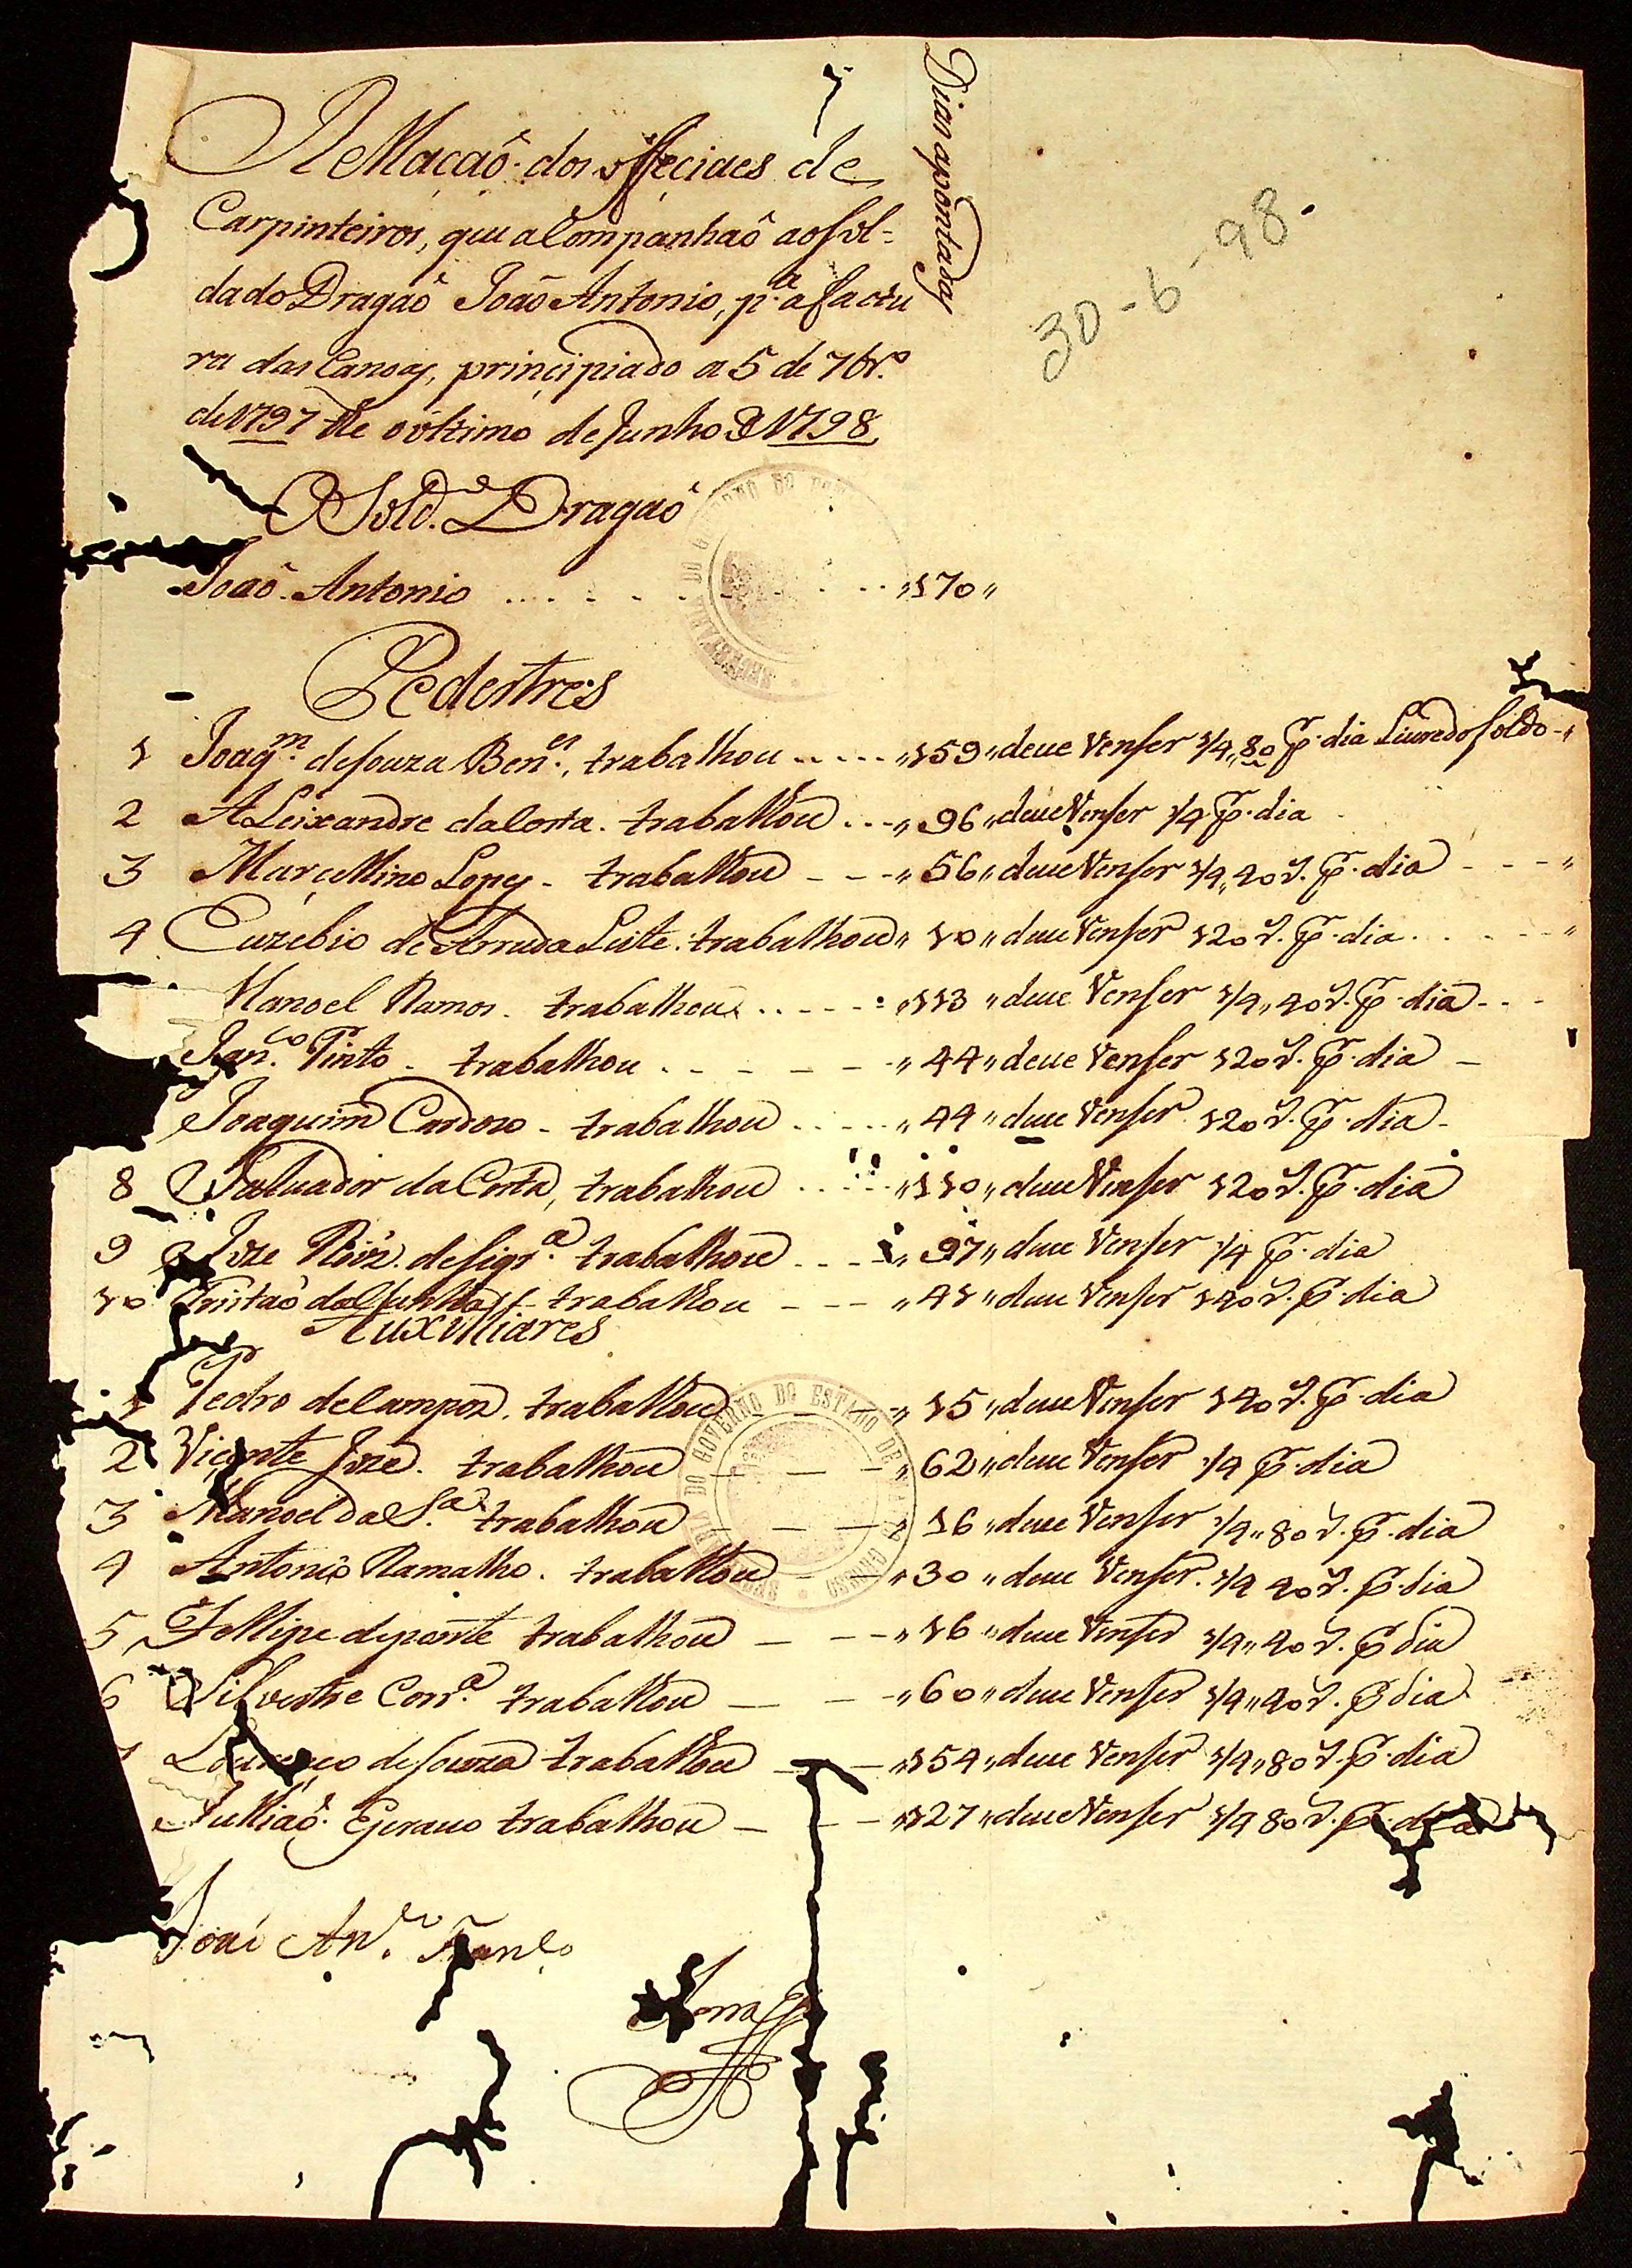 Rellação dos officiaes de
Carpinteiros, que acompanhaõ ao Sol=
dado Dragaõ João Antonio, p.ª a factu
ra das Canoas, principiado a 5 de 7br.º
de 1797 thé o ultimo de Junho de 1798
Dias apontados
30-6-98.
O Sold.º Dragaõ
Joaõ Antonio ........ "170"
Pedestres
1 Joaq.m de souza Ben.es, trabalhou ..... "159" deve Venser 1/4"80 p.r dia Livre do soldo - "
2 ALeixandre da Costa. trabalhou ... " 96" deve Venser 1/4 p.r dia
3 Marcellino Lopes - trabalhou - - - " 56" deve Venser 1/4"40 r.s p.r dia - - - "
4 Euzebio de Arruda Leite. trabalhou " 10" deve Venser 120 r.s p.r dia ..... "
Manoel Ramos. trabalhou ..... "113" deve Venser 1/4"40 r.s p.r dia - - -
Fran.co Pinto. trabalhou . - - - - " 44" deve Venser 120 r.s p.r dia -
Joaquim Cardozo - trabalhou ..... " 44" deve Venser 120 r.s p.r dia -
8 Salvador da Costa, trabalhou ..... "110" deve Venser 120 r.s p.r dia
9 Joze Roiz. de siqr.ª trabalhou ... " 97" deve Venser 1/4 p.r dia
10 Tristaõ da Cunha trabalhou - - - " 41" deve Venser 140 r.s p.r dia
Auxilliares
1 Pedro de Campos. trabalhou - - - " 15" deve Venser 140 r.s p.r dia
2 Vicente Joze. trabalhou - - - - " 62" deve Venser 1/4 p.r dia
3 Manoel da S.ª trabalhou - - - " 16" deve Venser 1/4"80 r.s p.r dia
4 Antonio Ramalho. trabalhou - - " 30" deve Venser. 1/4 40 r.s p.r dia
5 Fellipe deponte trabalhou - - - " 16" deve Venser 1/4"40 r.s p.r dia
6 Silvestre Corr.ª trabalhou - - - " 60" deve Venser 1/4"40 r.s p.r dia
7 Lourenço de souza trabalhou - - "154" deve Venser 1/4"80 r.s p.r dia
Julliaõ trabalhou - - - "127" deve Venser 1/4 80 r.s p.r dia
An.to
SECRETARIA DO GOVERNO DO ESTADO DE MATTO GROSSO